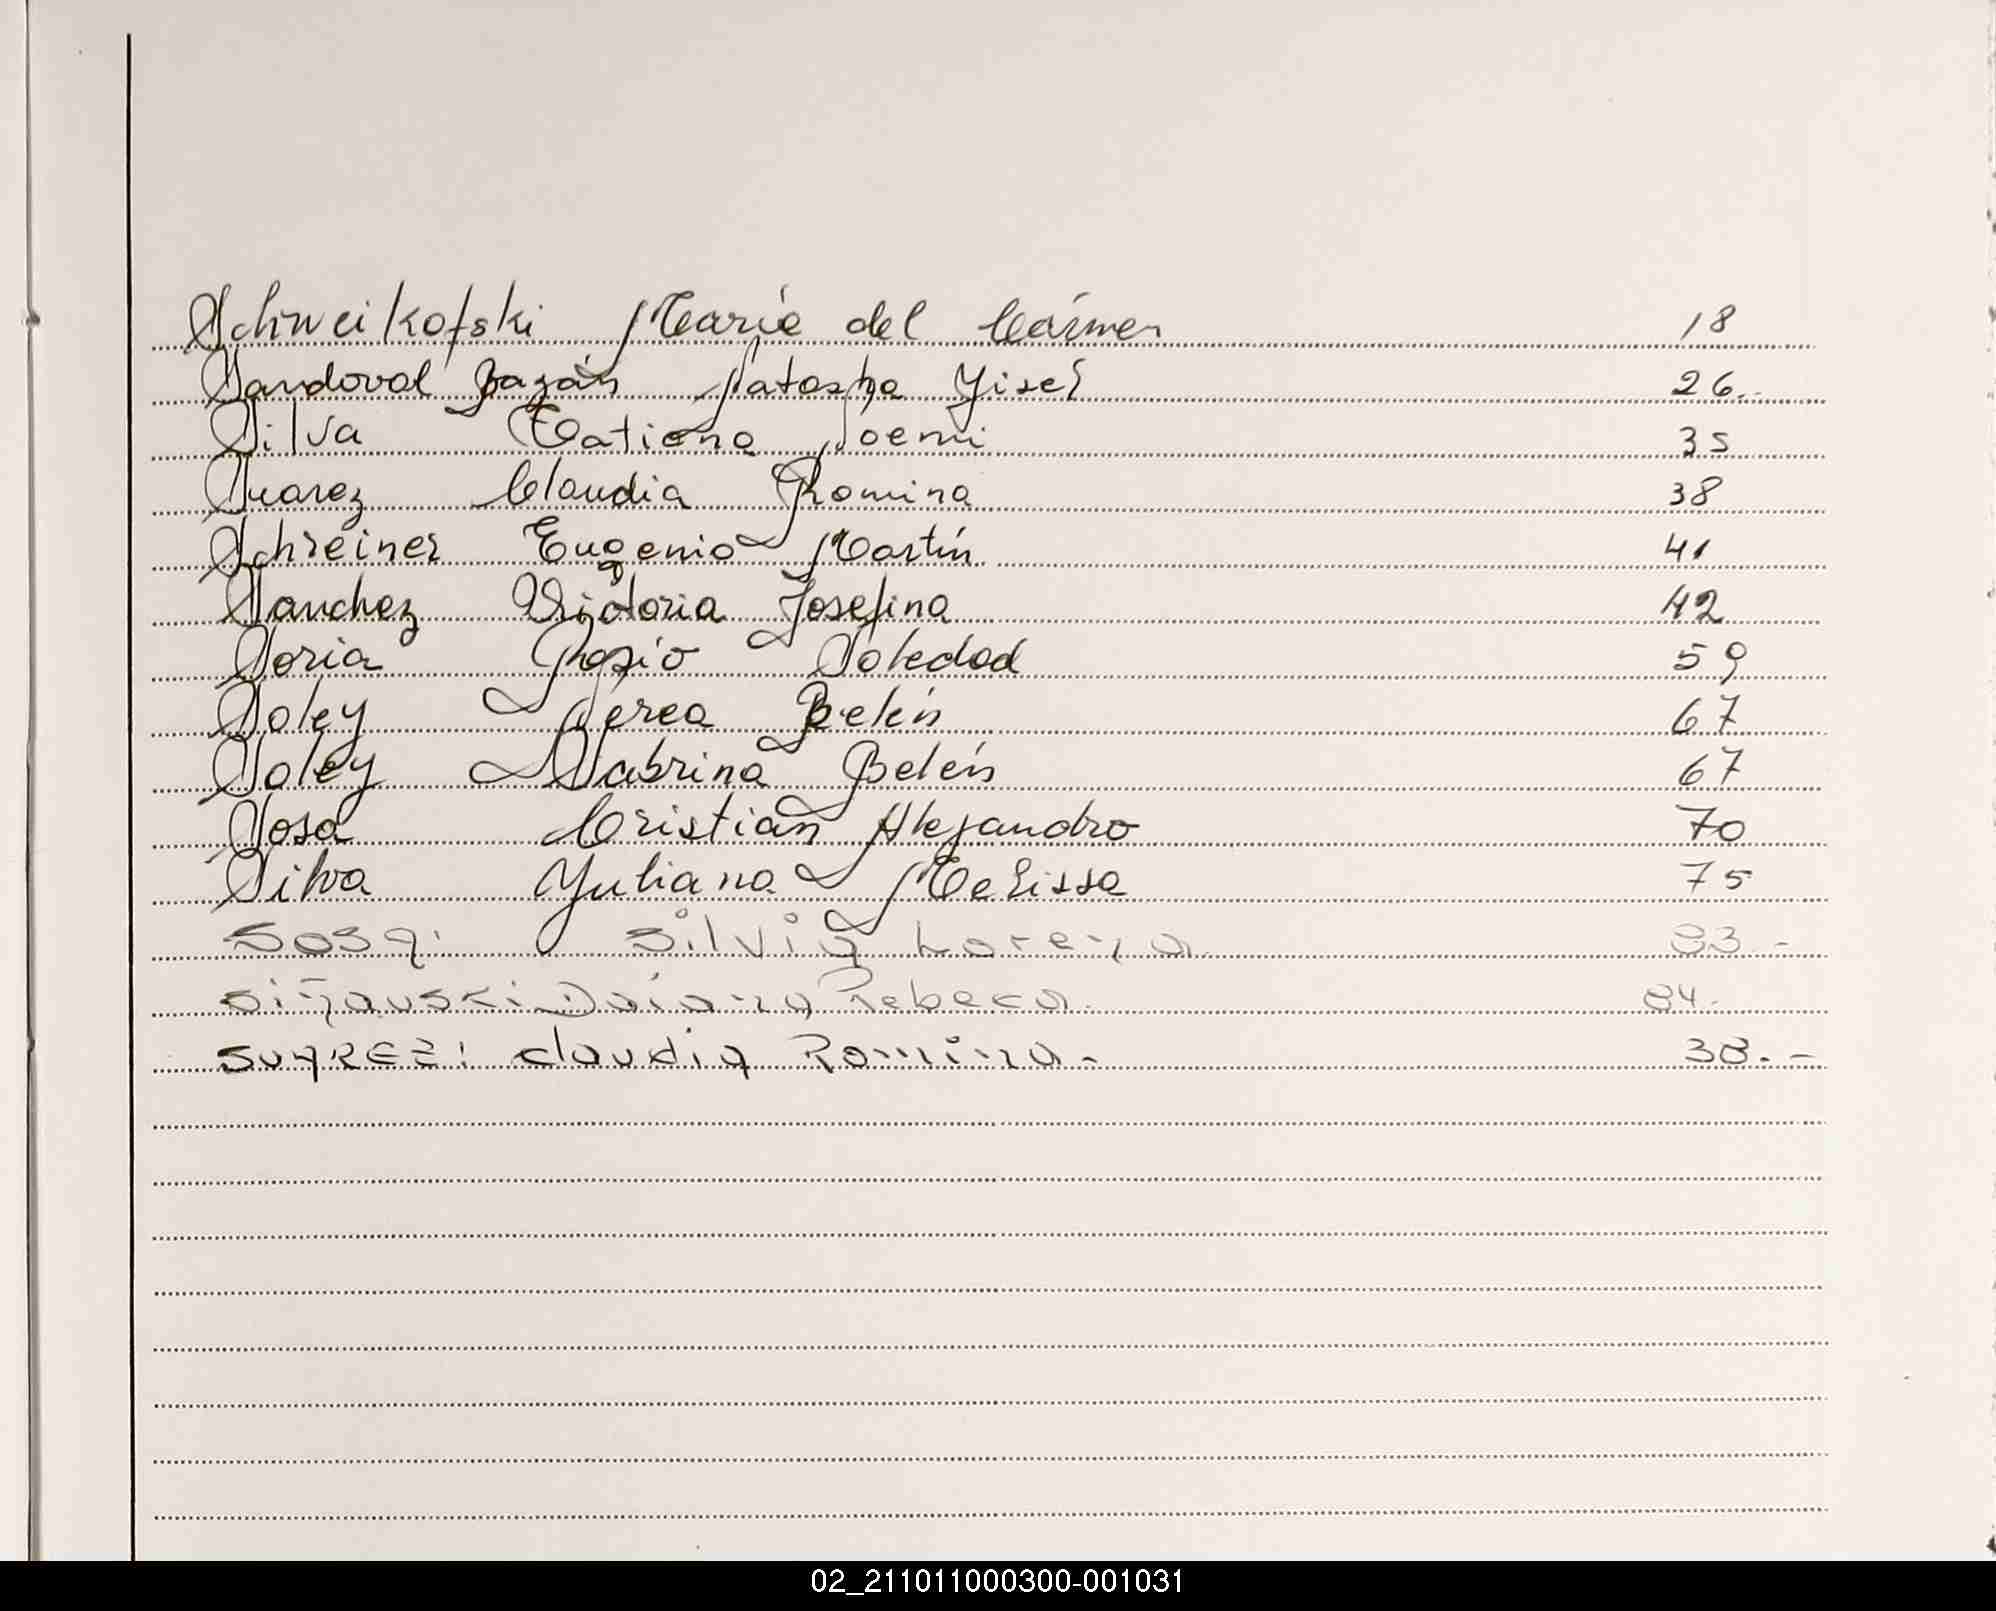 Schweikofski María del Cármen 18
Sandoval Bazán Natasha Yisel 26.-
Silva Tatiana Noemi 35
Suarez Claudia Romina 38
Schreiner Eugenio Martín 41
Sanchez Victoria Josefina 42
Soria Rosio Soledad 59
Soley Nerea Belén 67
Soley Sabrina Belén 67
Sosa Cristian Alejandro 70
Silva Yuliana Melissa 75
Sosa: Silvia Lorena 83.-
Daiana Rebeca. 84.-
SUAREZ: Claudia Romina.- 38.-
02_211011000300-001031